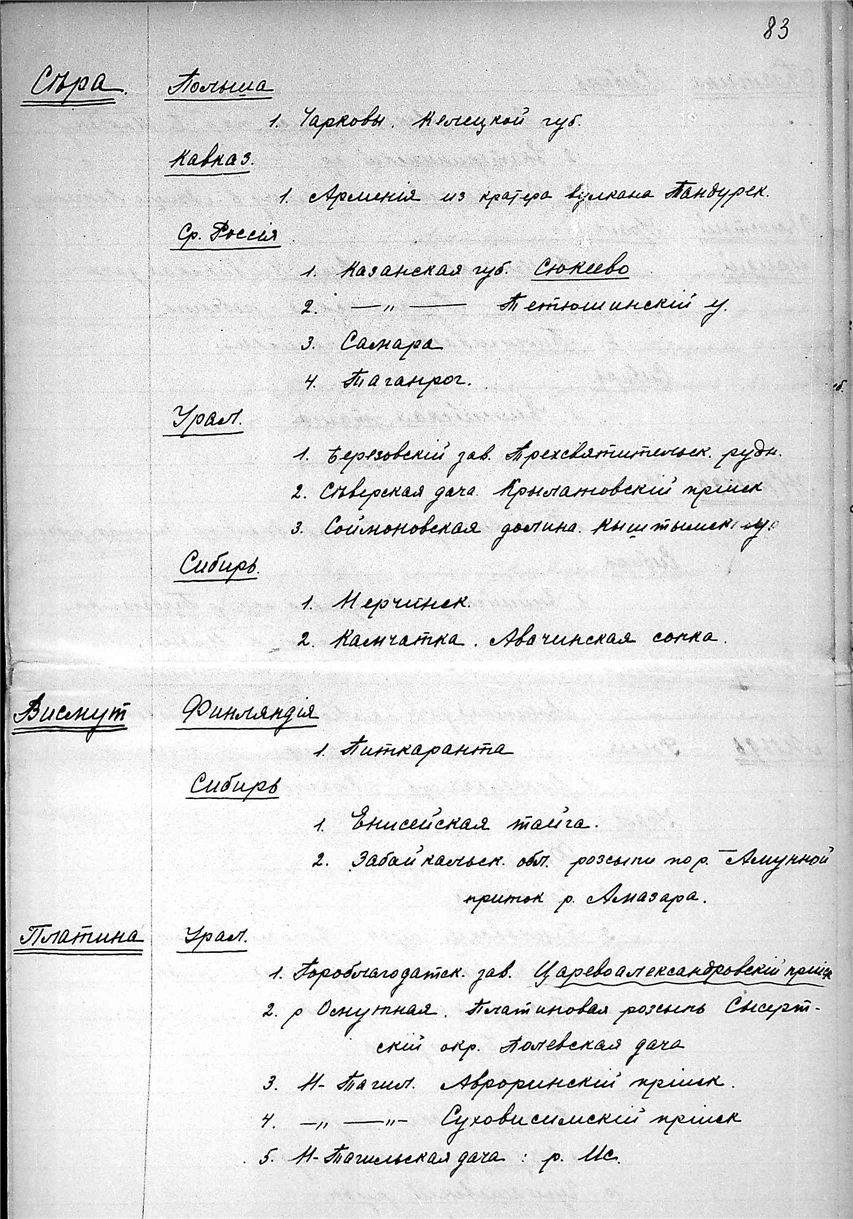 83
Сѣра Польша
1. Чарковы. Келецкой губ.
Кавказ.
1. Арменія из кратера вулкана Тандурек.
Ср. Россія
1. Казанская губ. Сюкеево
2. —„— Тетюшинскій у.
3. Самара
4. Таганрог.
Урал.
1. Березовскій зав. Трехсвятительск. рудн.
2. Сѣверская дача. Крылатовскій пріиск
3. Соймоновская долина. Кыштымск. у.
Сибирь.
1. Нерчинск.
2. Камчатка. Авачинская сопка.
Висмут Финляндія
1. Питкаранта
Сибирь
1. Енисейская тайга.
2. Забайкальск. обл. розсыпи по р. Амунной
приток р. Амазара.
Платина Урал.
1. Гороблагодатск. зав. Царевоалександровскій пріиск
2. р Осмутная. Платиновая розсыпь Сысерт-
скій окр. Полевская дача
3. Н-Тагил. Авроринскій пріиск.
4. —„— —„— Суховисимскій пріиск
5. Н-Тагильская дача: р. Ис.